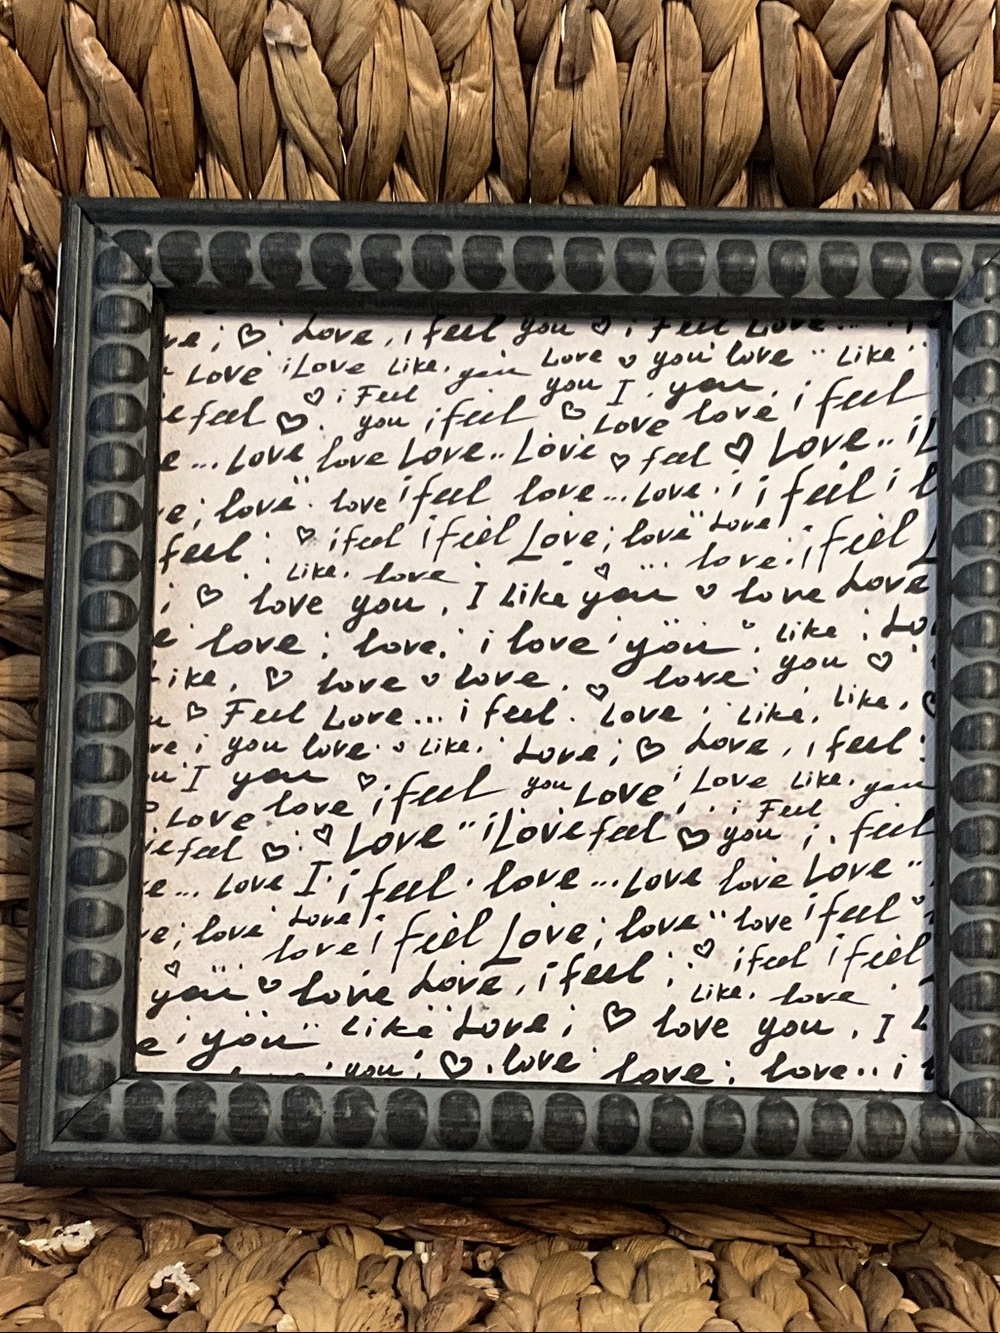 ve ; ♡ Love , i feel you ♡ ; Feel Love...
Love i Love Like, you Love ♡ you love " Like
♡ i Feel you I you
e feel ♡ . you i feel ♡ Love love i feel
e ... Love love Love.. Love ♡ feel ♡ Love.. i L
e ; love" . love i feel love... Love . i i feel i l
feel . ♡ i feel i feel Love ; love" Love
Like, love . ♡ ... love . i feel L
; ♡ love you , I Like you ♡ love Love
e love ; love, i love 'you" . Like ; Lo
Like, ♡ love ♡ love . ♡ love you ♡
u ♡ Feel Love... i feel . Love ; Like, Like, ♡
ve ; you love . ♡ Like, Love ; ♡ Love , i feel :
u I you ♡ i feel you Love ' Love Like, you
♡ Love love i Feel
ve feel ♡ . ♡ Love " i Love feel ♡ you ; . feel
e ... Love I ' i feel . love ... Love love Love "
e ; love Love i feel Love ; love" love i feel "
♡ ... love ! ♡ i feel i feel
you ♡ love Love , i feel ; Like, love
e ' you" Like Love ; ♡ love you , I L
you ; ♡ . love love ; love.. i